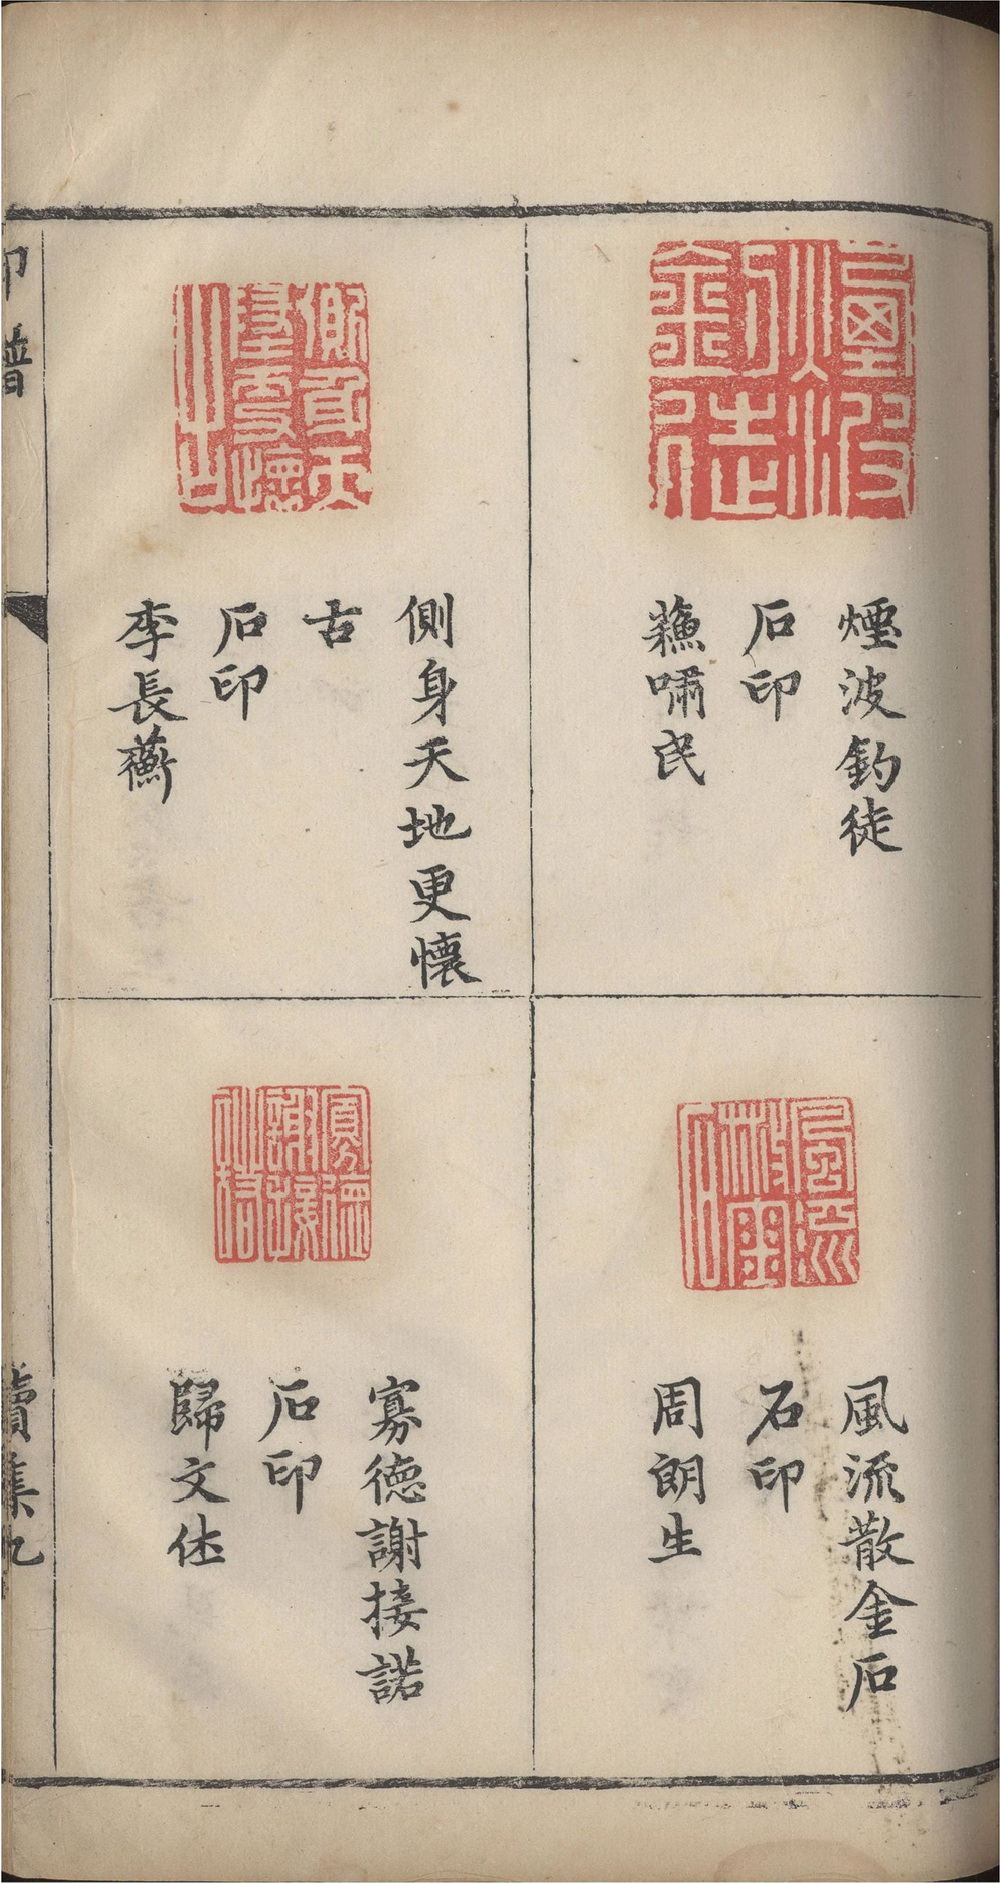 煙波釣徒
石印
蘓嘯民
風流散金石
石印
周朗生
側身天地更懷
古
石印
李長蘅
寡德謝接諾
石印
歸文休
印譜
續集九